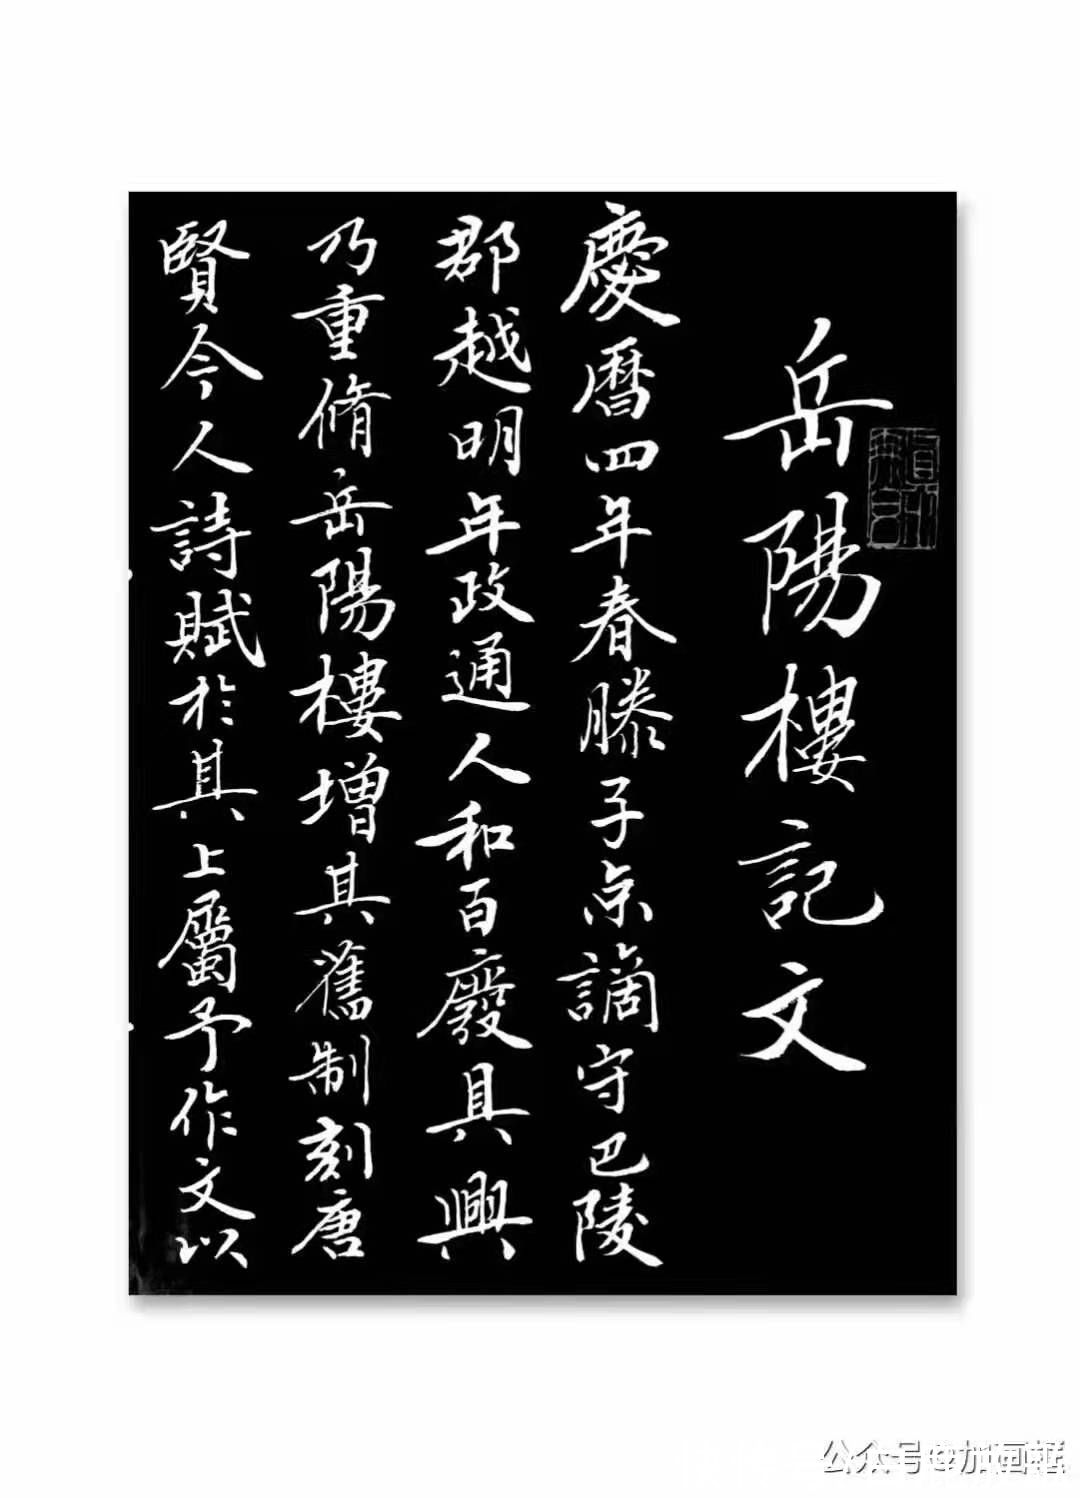 岳陽樓記文
慶曆四年春滕子京謫守巴陵
郡越明年政通人和百廢具興
乃重脩岳陽樓增其舊制刻唐
賢今人詩賦於其上屬予作文以
公众号@加画框